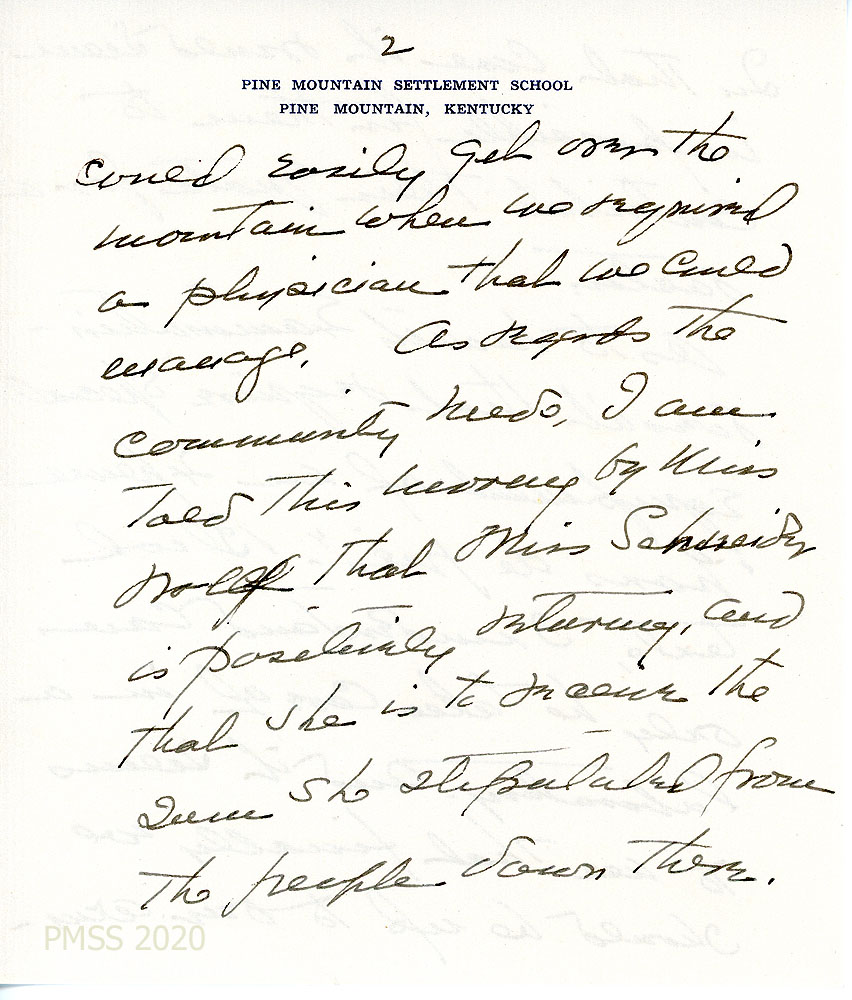 2
PINE MOUNTAIN SETTLEMENT SCHOOL
PINE MOUNTAIN, KENTUCKY
could easily get over the
mountain when we required
a physician that we could
manage. As regards the
community needs, I am
told this morning by Miss
that Miss Schneider
is positively returning, and
that she is to receive the
sum she stipulated from
the people down there.
PMSS 2020